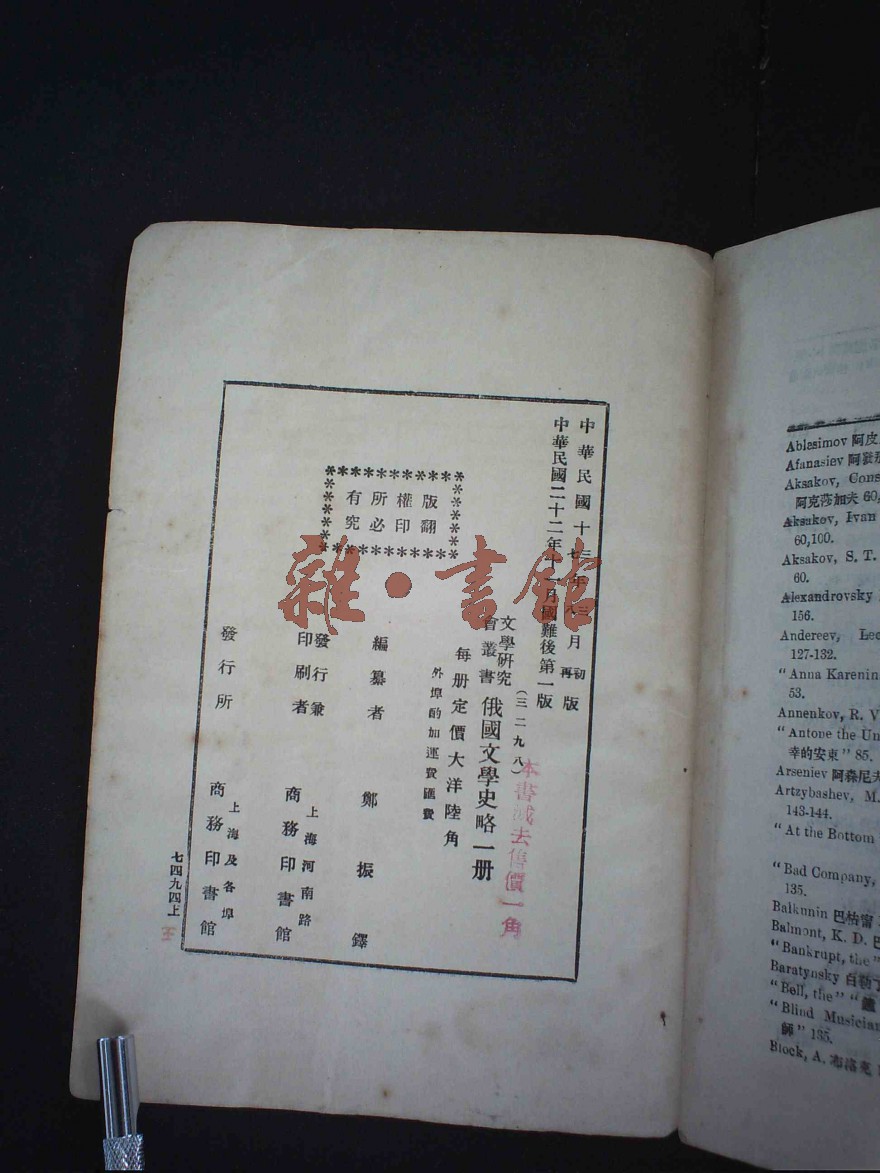 中華民國十三年三月初版
七年八再
中華民國二十二年十一月國難後第一版
(三二九八)
文學研究
會叢書
俄國文學史略一册
每册定價大洋陸角
外埠酌加運費匯費
本書減去售價一角
版權所有
翻印必究
編纂者
鄭振鐸
發行兼
印刷者
上海河南路
商務印書館
發行所
上海及各埠
商務印書館
七四九四上
王
雜·書館
Ablesimov 阿皮
Afanasiev 阿發那
Aksakov, Cons
阿克莎加夫 60,
Aksakov, Ivan
60,100.
Aksakov, S. T.
60.
Alexandrovsky
156.
Andereev, Leo
127-132.
"Anna Karenin
53.
Annenkov, R. V
"Antone the Un
幸的安東" 85.
Arseniev 阿森尼夫
Artzybashev, M.
143-144.
"At the Bottom
"Bad Company,
135.
Balkunin 巴枯甯
Balmont, K. D. 巴
"Bankrupt, the"
Baratynsky 白勒丁
"Bell, the" "鐘
"Blind Musician
師" 135.
Block, A. 布洛克